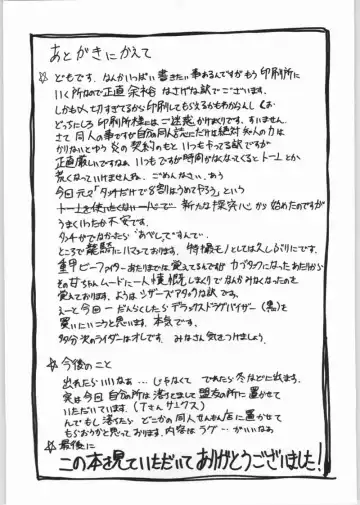 あとがきにかえて
☆ どもです。なんかいっぱい書きたい事あるんですがもう印刷所に
いく所なので正直余裕なさげな訳でございます。
しかも〆切すぎてるから印刷してもらえるかもわからんし
どっちにしろ印刷所様にはご迷惑かけおりまス。すいません。
さて同人の事ですが自分の同人誌にだけは絶対他人の力は
かりないとゆう炎の契約のもといつもやってる訳ですが
正直厳しいですねぇ。いつもですが時間がなくなってくるとトーンとか
荒くなっていけませんね。ごめんなさい。
今回元々「タッチだけで8割はうめてやろう」という
トーンを使いたくない一心で新たな探究心から始めたのですが
うまくいったか不安です。
タッチがでなかったら
ところで龍騎にハマっております。特撮モノとしては久しぶりにです。
重甲ビーファイターあたりまでは覚えてるんですが カブタックになったあたりから
覚えております。ようはシザーズアタックな訳です。
えーと今回
買いたいこうと思います。本気です。
多分次のライダーはオレです。みなさん気をつけましょう。
☆ 今後のこと
出れたらいいなぁ…じゃなくて でれたら冬などに出ます。
実は今回自分の所は落ちまして盟友の所に置かせて
いただいています。(Tさんサークス)
んでもし落ちたらどこかの同人せんもん店に置かせて
もらおうかと思っております。内容はラグ…がいいなぁ
☆ 最後に
この本を見ていただいてありがとうございました!